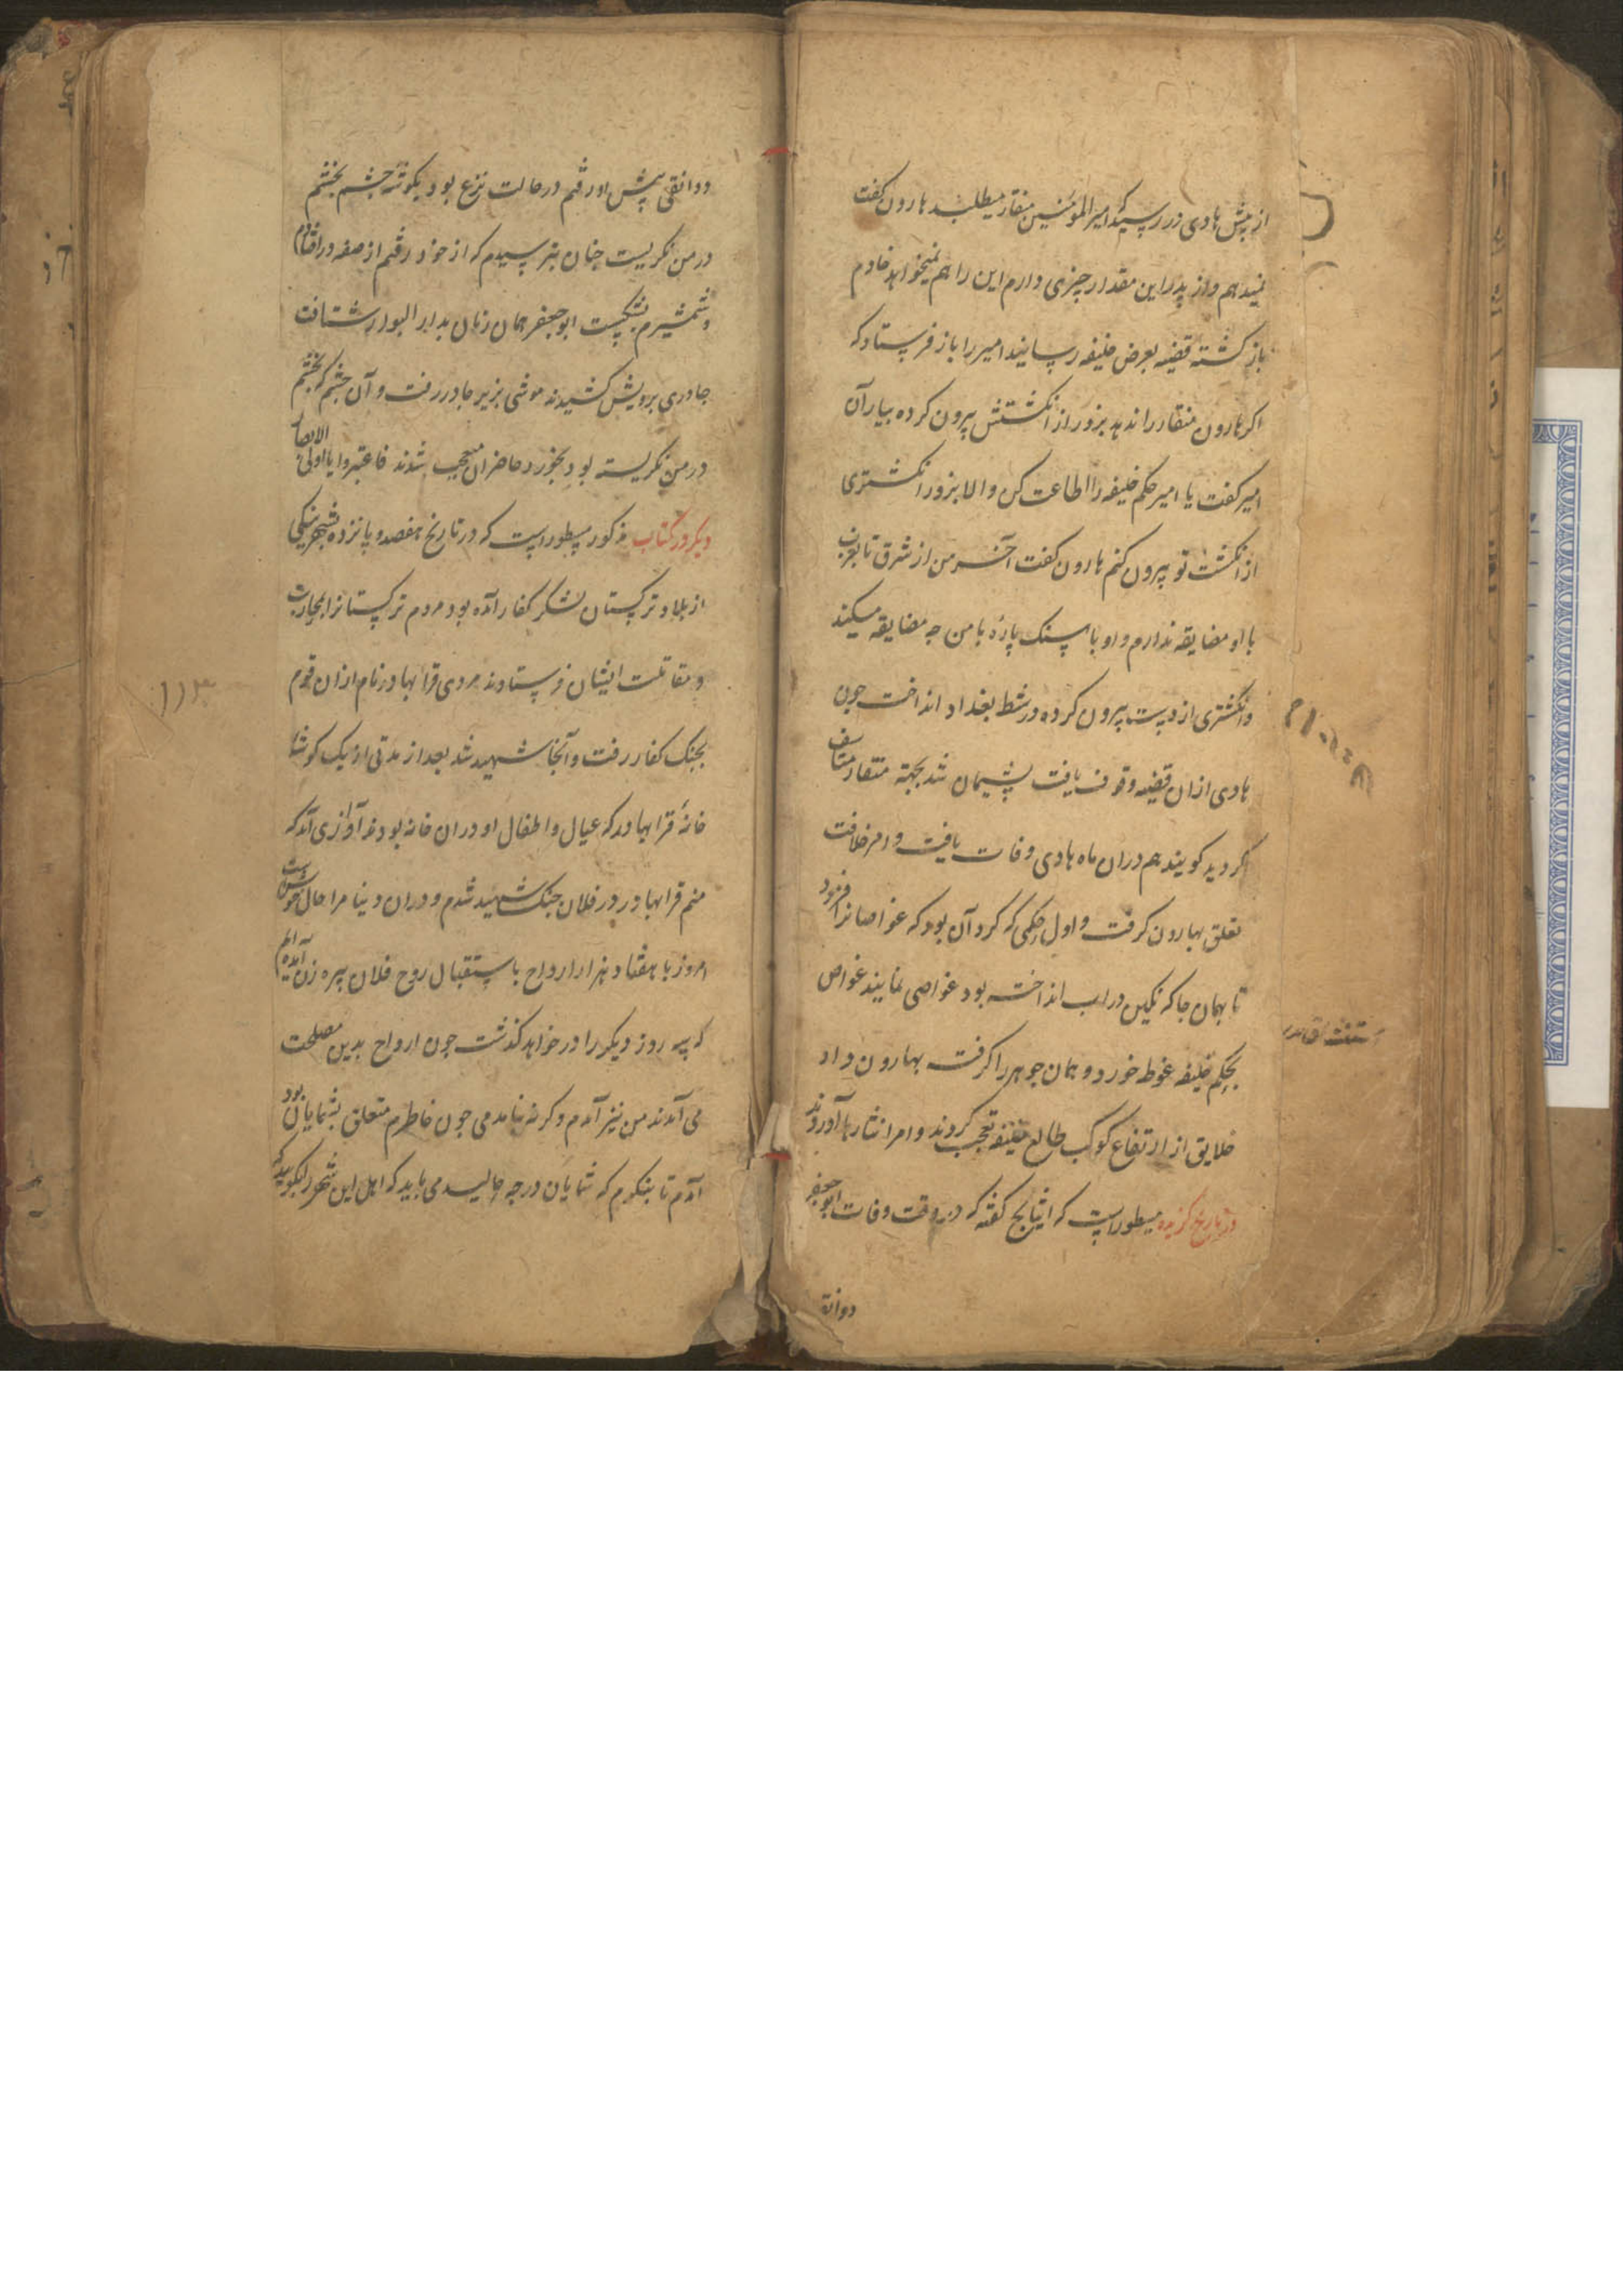 از پیش هادی در رسید که امیر المؤمنین منقار میطلبد هارون کفت
نمیدهم و از پدر این مقدار چیزی دارم این را هم نمیخواهد خادم
باز کشته قضیه بعرض خلیفه رسانید امیر را باز فرستاد که
اکر هارون منقار را ندهد بزور از انکشتش بیرون کرده بیار آن
امیر کفت یا امیر حکم خلیفه را اطاعت کن والا بزور انکشتری
از انکشت تو بیرون کنم هارون کفت آخر من از شرق تا بغرب
با او مضایقه ندارم و او با سنک پارهٔ با من چه مضایقه میکند
و انکشتری از دست بیرون کرده در شط بغداد انداخت چون
هادی ازان قضیه وقوف یافت پشیمان شد بجهة منقار متاسف
کردید کویند هم دران ماه هادی وفات یافت و امر خلافت
تعلق بهارون کرفت و اول حکمی که کرد آن بود که غواصانرا فرمود
تا بهمان جا که نکین در اب انداخته بود غواصی نمایند غواص
بحکم خلیفه غوطه خورد و همان جوهر را کرفت بهارون داد
خلایق از ارتفاع کوکب طالع خلیفه تعجب کردند و امرا نثارها آوردند
در تاریخ کزیده مسطور است که کفته که در وقت وفات ابو جعفر
دوانق
دوانقی پیش او رفتم در حالت نزع بود بکوشهٔ چشم بخشم
در من نکریست چنان بترسیدم که از خود رفتم از صفه در افتادم
و شمشیرم بشکست ابو جعفر همان زمان بدار البوار شتافت
چادری برویش کشیدند موشی بزیر چادر رفت و آن چشم که بخشم
در من نکریسته بود بخورد حاضران متعجب شدند فاعتبروا یا اولی الابصار
دیکر در کتاب مذکور مسطور است که در تاریخ هفصد و پانزده
از بلاد ترکستان لشکر کفار آمده بود مردم ترکستانرا بمحاربت
و مقاتلت ایشان فرستادند مردی قرابهادر نام ازان قوم
بجنک کفار رفت و آنجا شهید شد بعد از مدتی از یک کوشهٔ
خانهٔ قرابهادر که عیال و اطفال او دران خانه بودند آوازی آمد که
منم قرابهادر در فلان جنک شهید شدم و دران دنیا مرا حال خوشست
امروز با هفتاد هزار ارواح باستقبال روح فلان پیره زن آمده ایم
که سه روز دیکر را در خواهد کذشت چون ارواح بدین مصلحت
می آمدند من نیز آمدم و کرنه نیامدمی چون خاطرم متعلق بشمایان بود
آمدم تا بنکرم که شمایان در چه حالید می باید که اهل این شهر را بکویید که